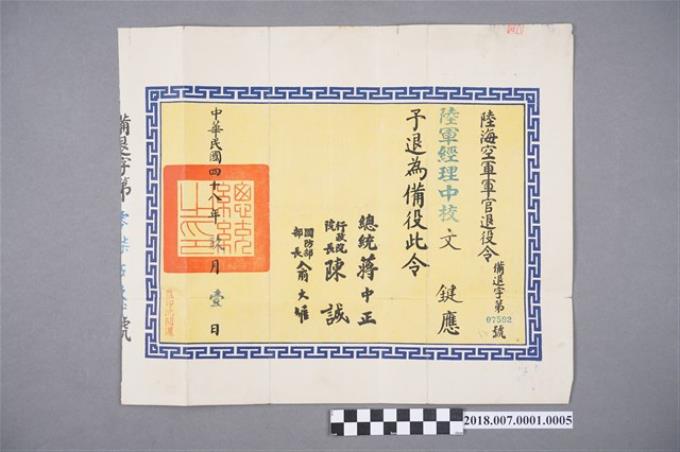 陸海空軍軍官退役令
備退字第07592號
陸軍經理中校文鍵應
予退為備役此令
總統蔣中正
行政院院長陳誠
國防部部長俞大維
中華民國四十八年 月壹日
總統之印
備退字第零柒 號
2018.007.0001.0005